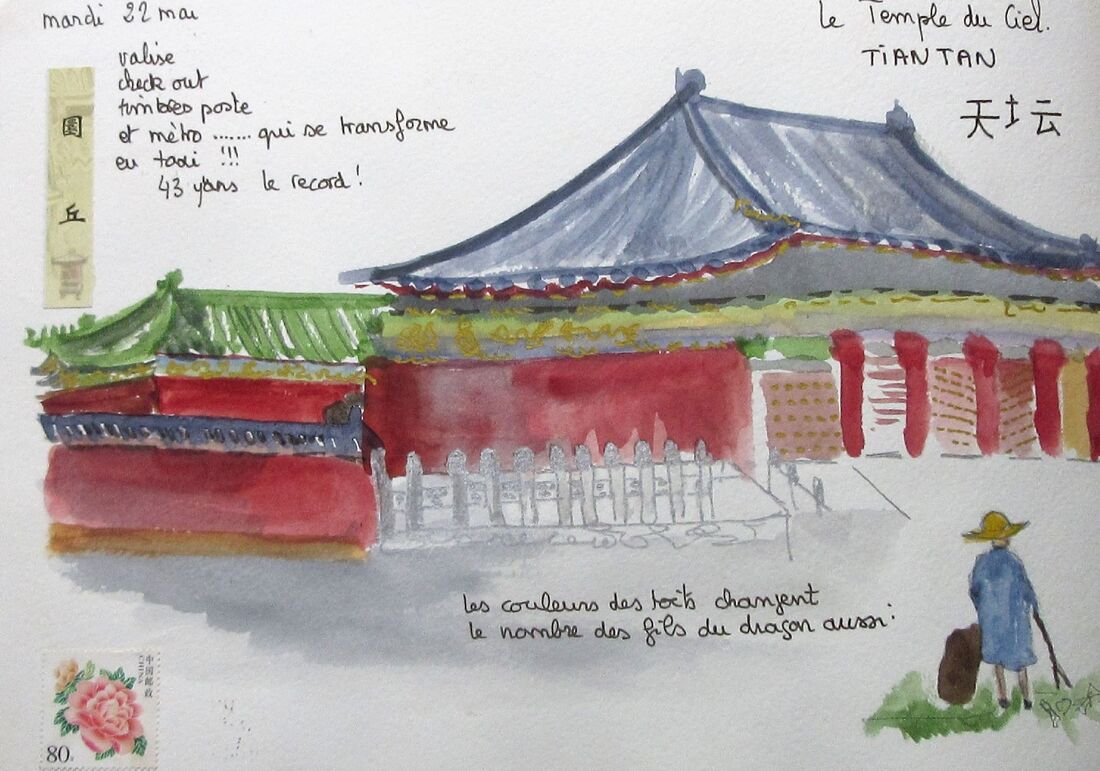 mardi 22 mai
valise
check out
timbres poste
et mètro ....... qui se transforme
en taxi !!!
43 yans le record !
le Temple du Ciel.
TIANTAN
天坛云
圜
丘
les couleurs des toits changent
le nombre des fils du dragon aussi.
中国邮政
CHINA
80分